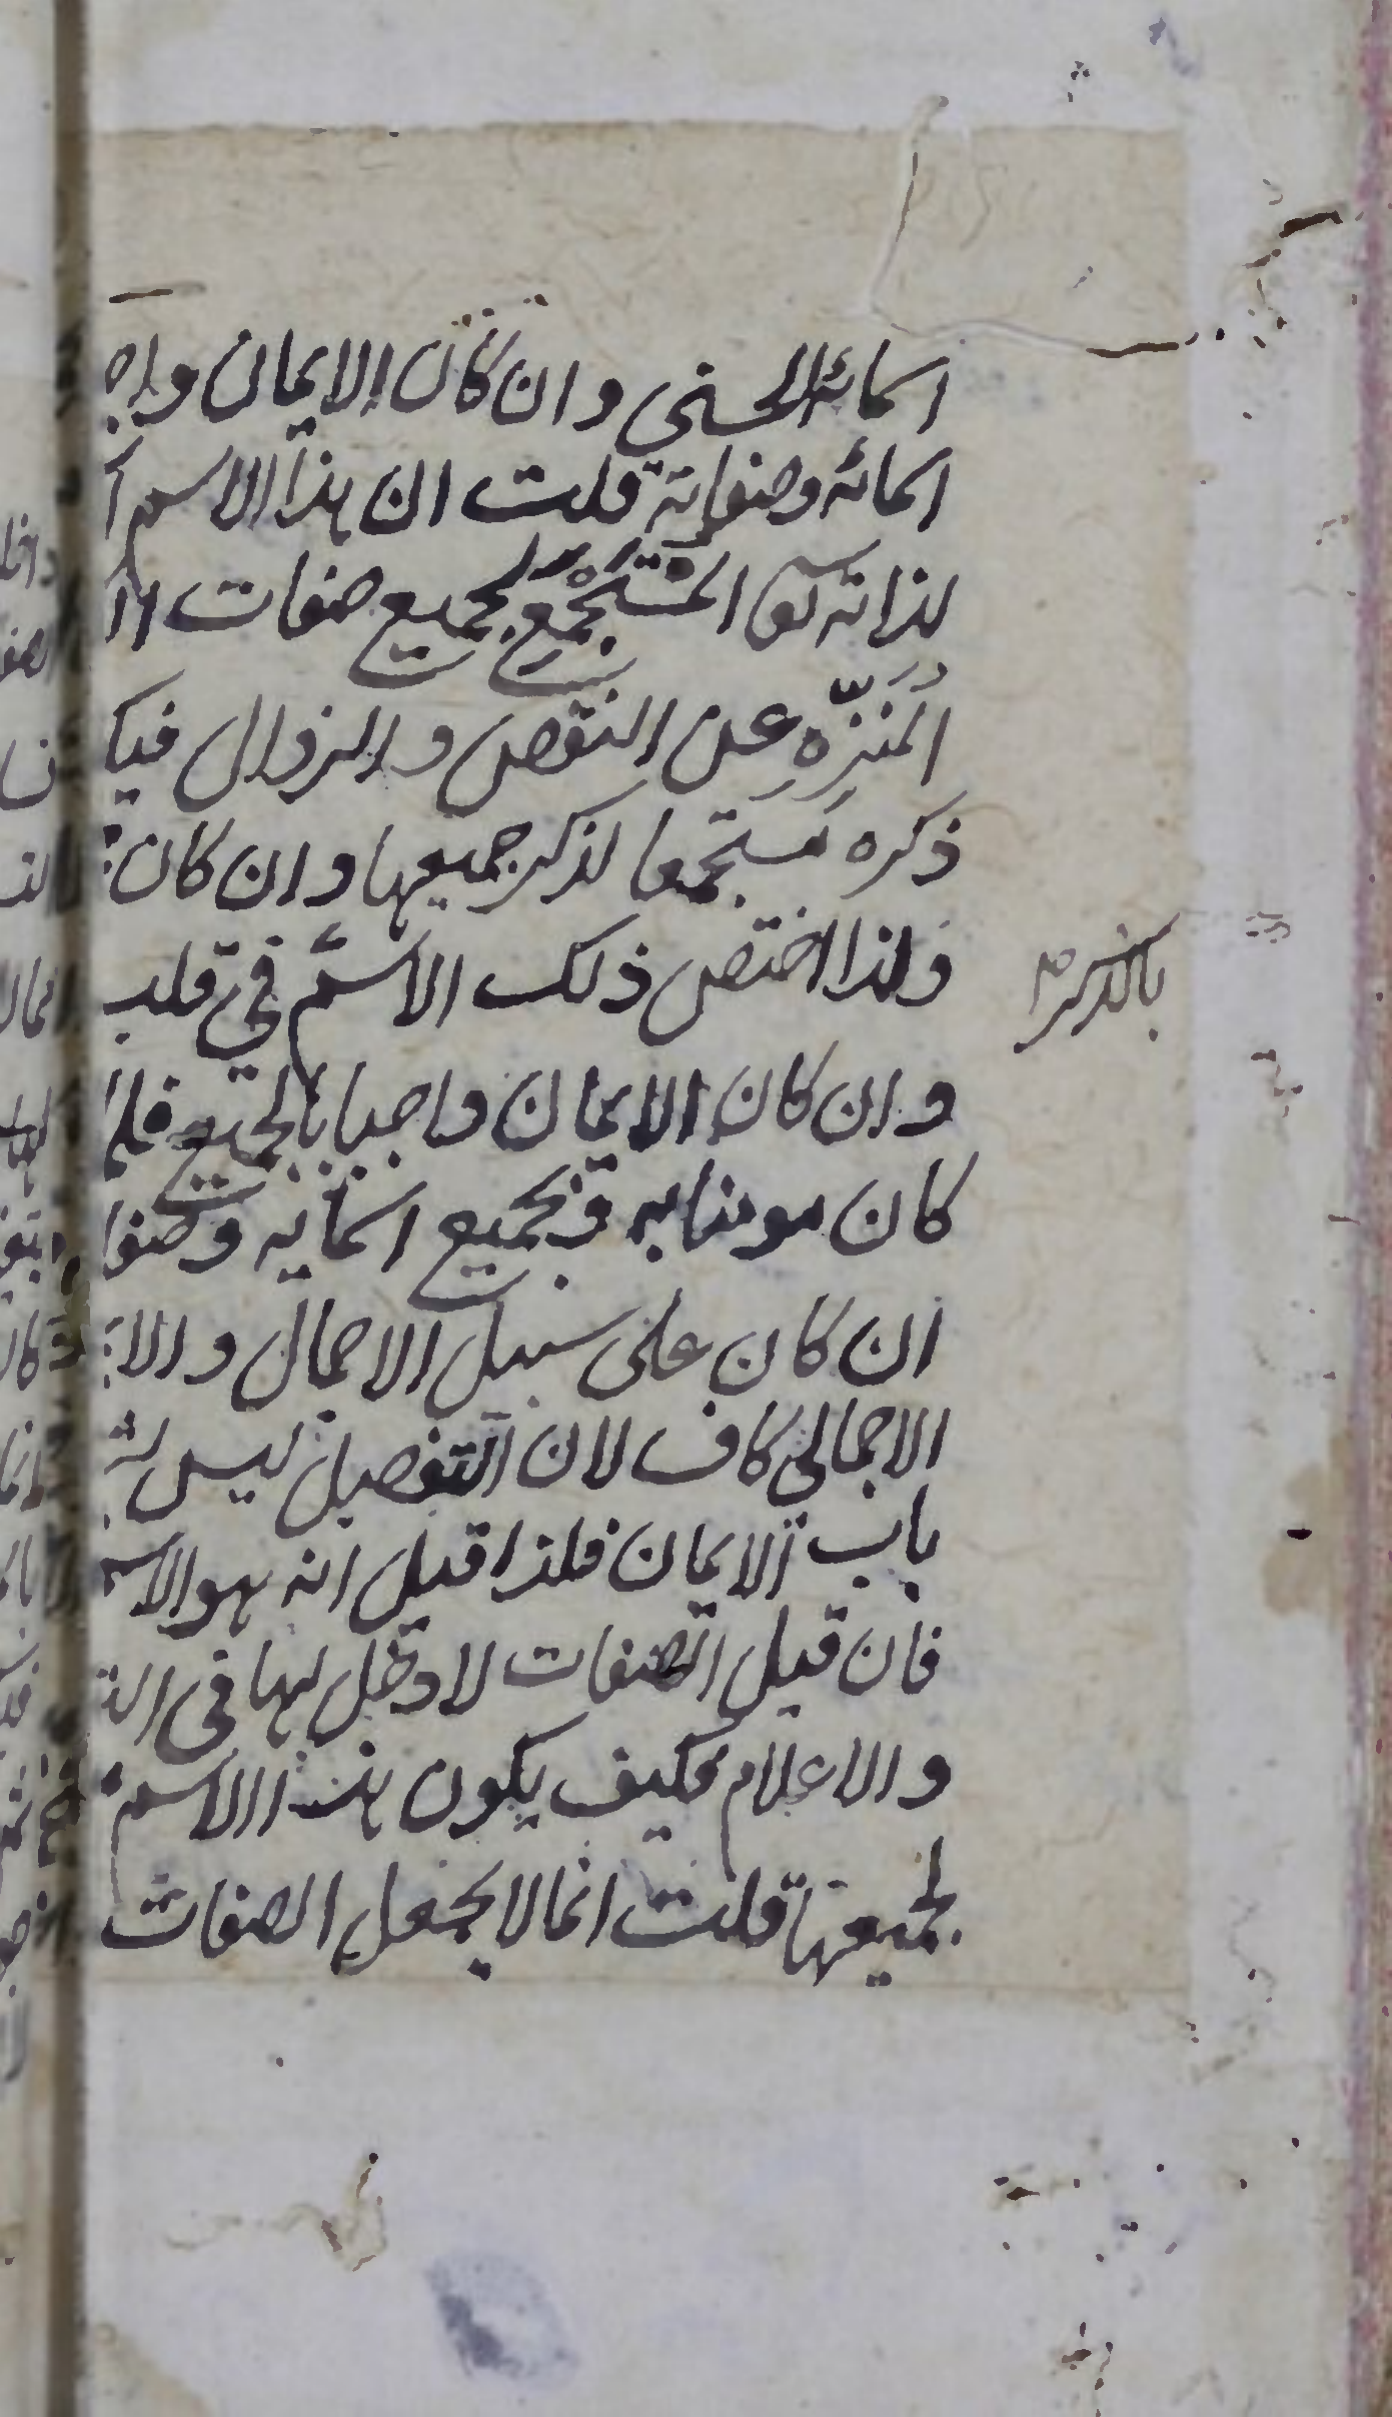 اسمائه الحسنى وان كان الايمان واج
اسمائه وصفاته قلت ان هذا الاسم ا
لذاته تعو المستجمع لجميع صفات ال
المنزّه عن النقص والزوال فيكا
ذكره مستجمعا لذكر جميعها وان كان
ولذا اختص ذلك الاسم في قلب
بالذكر صح
وان كان الايمان واجبا بالجميع فلما
كان مومنا به فبجميع اسمايه وصفا
ان كان على سبيل الاجمال والا
الاجمالى كاف لان التفصيل ليس لش
باب الايمان فلذا قيل انه هو الاسم
فان قيل الصفات لا دخل لها فى الذ
والاعلام فكيف يكون هذا الاسم
لجميعها قلت انما لا يجعل الصفات